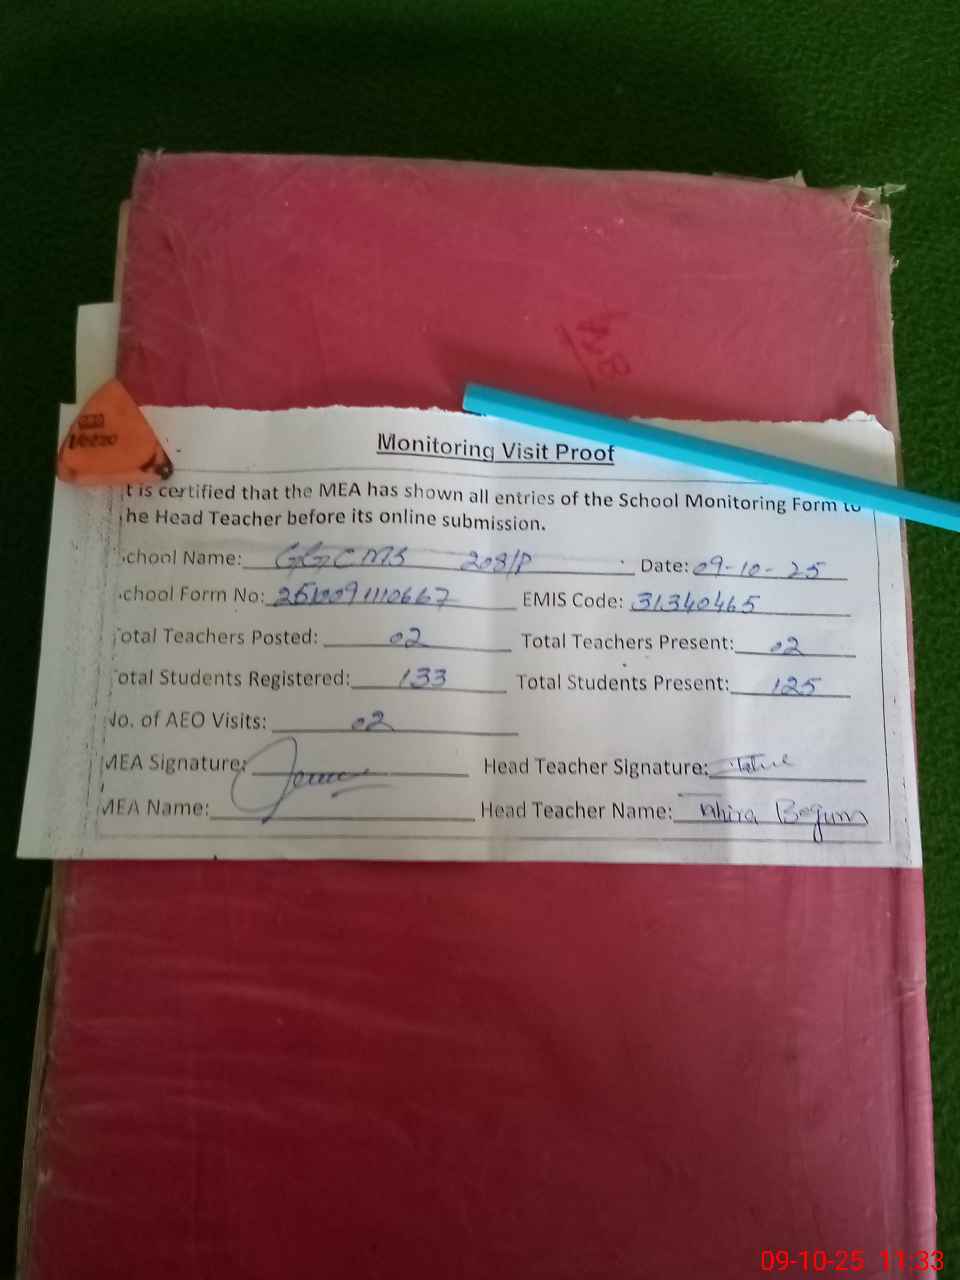 Monitoring Visit Proof
t is certified that the MEA has shown all entries of the School Monitoring Form to
he Head Teacher before its online submission.
chool Name: GGCMS 208/P Date: 09-10-25
chool Form No: 2510091110667 EMIS Code: 31340465
otal Teachers Posted: 02 Total Teachers Present: 02
otal Students Registered: 133 Total Students Present: 125
No. of AEO Visits: 02
MEA Signature: Head Teacher Signature:
MEA Name: Head Teacher Name: Tahira Begum
09-10-25 11:33